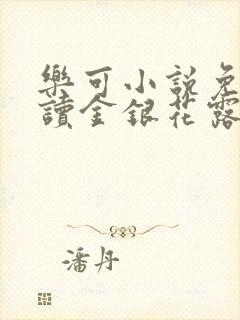 樂可小說免
讀金銀花露
潘丹